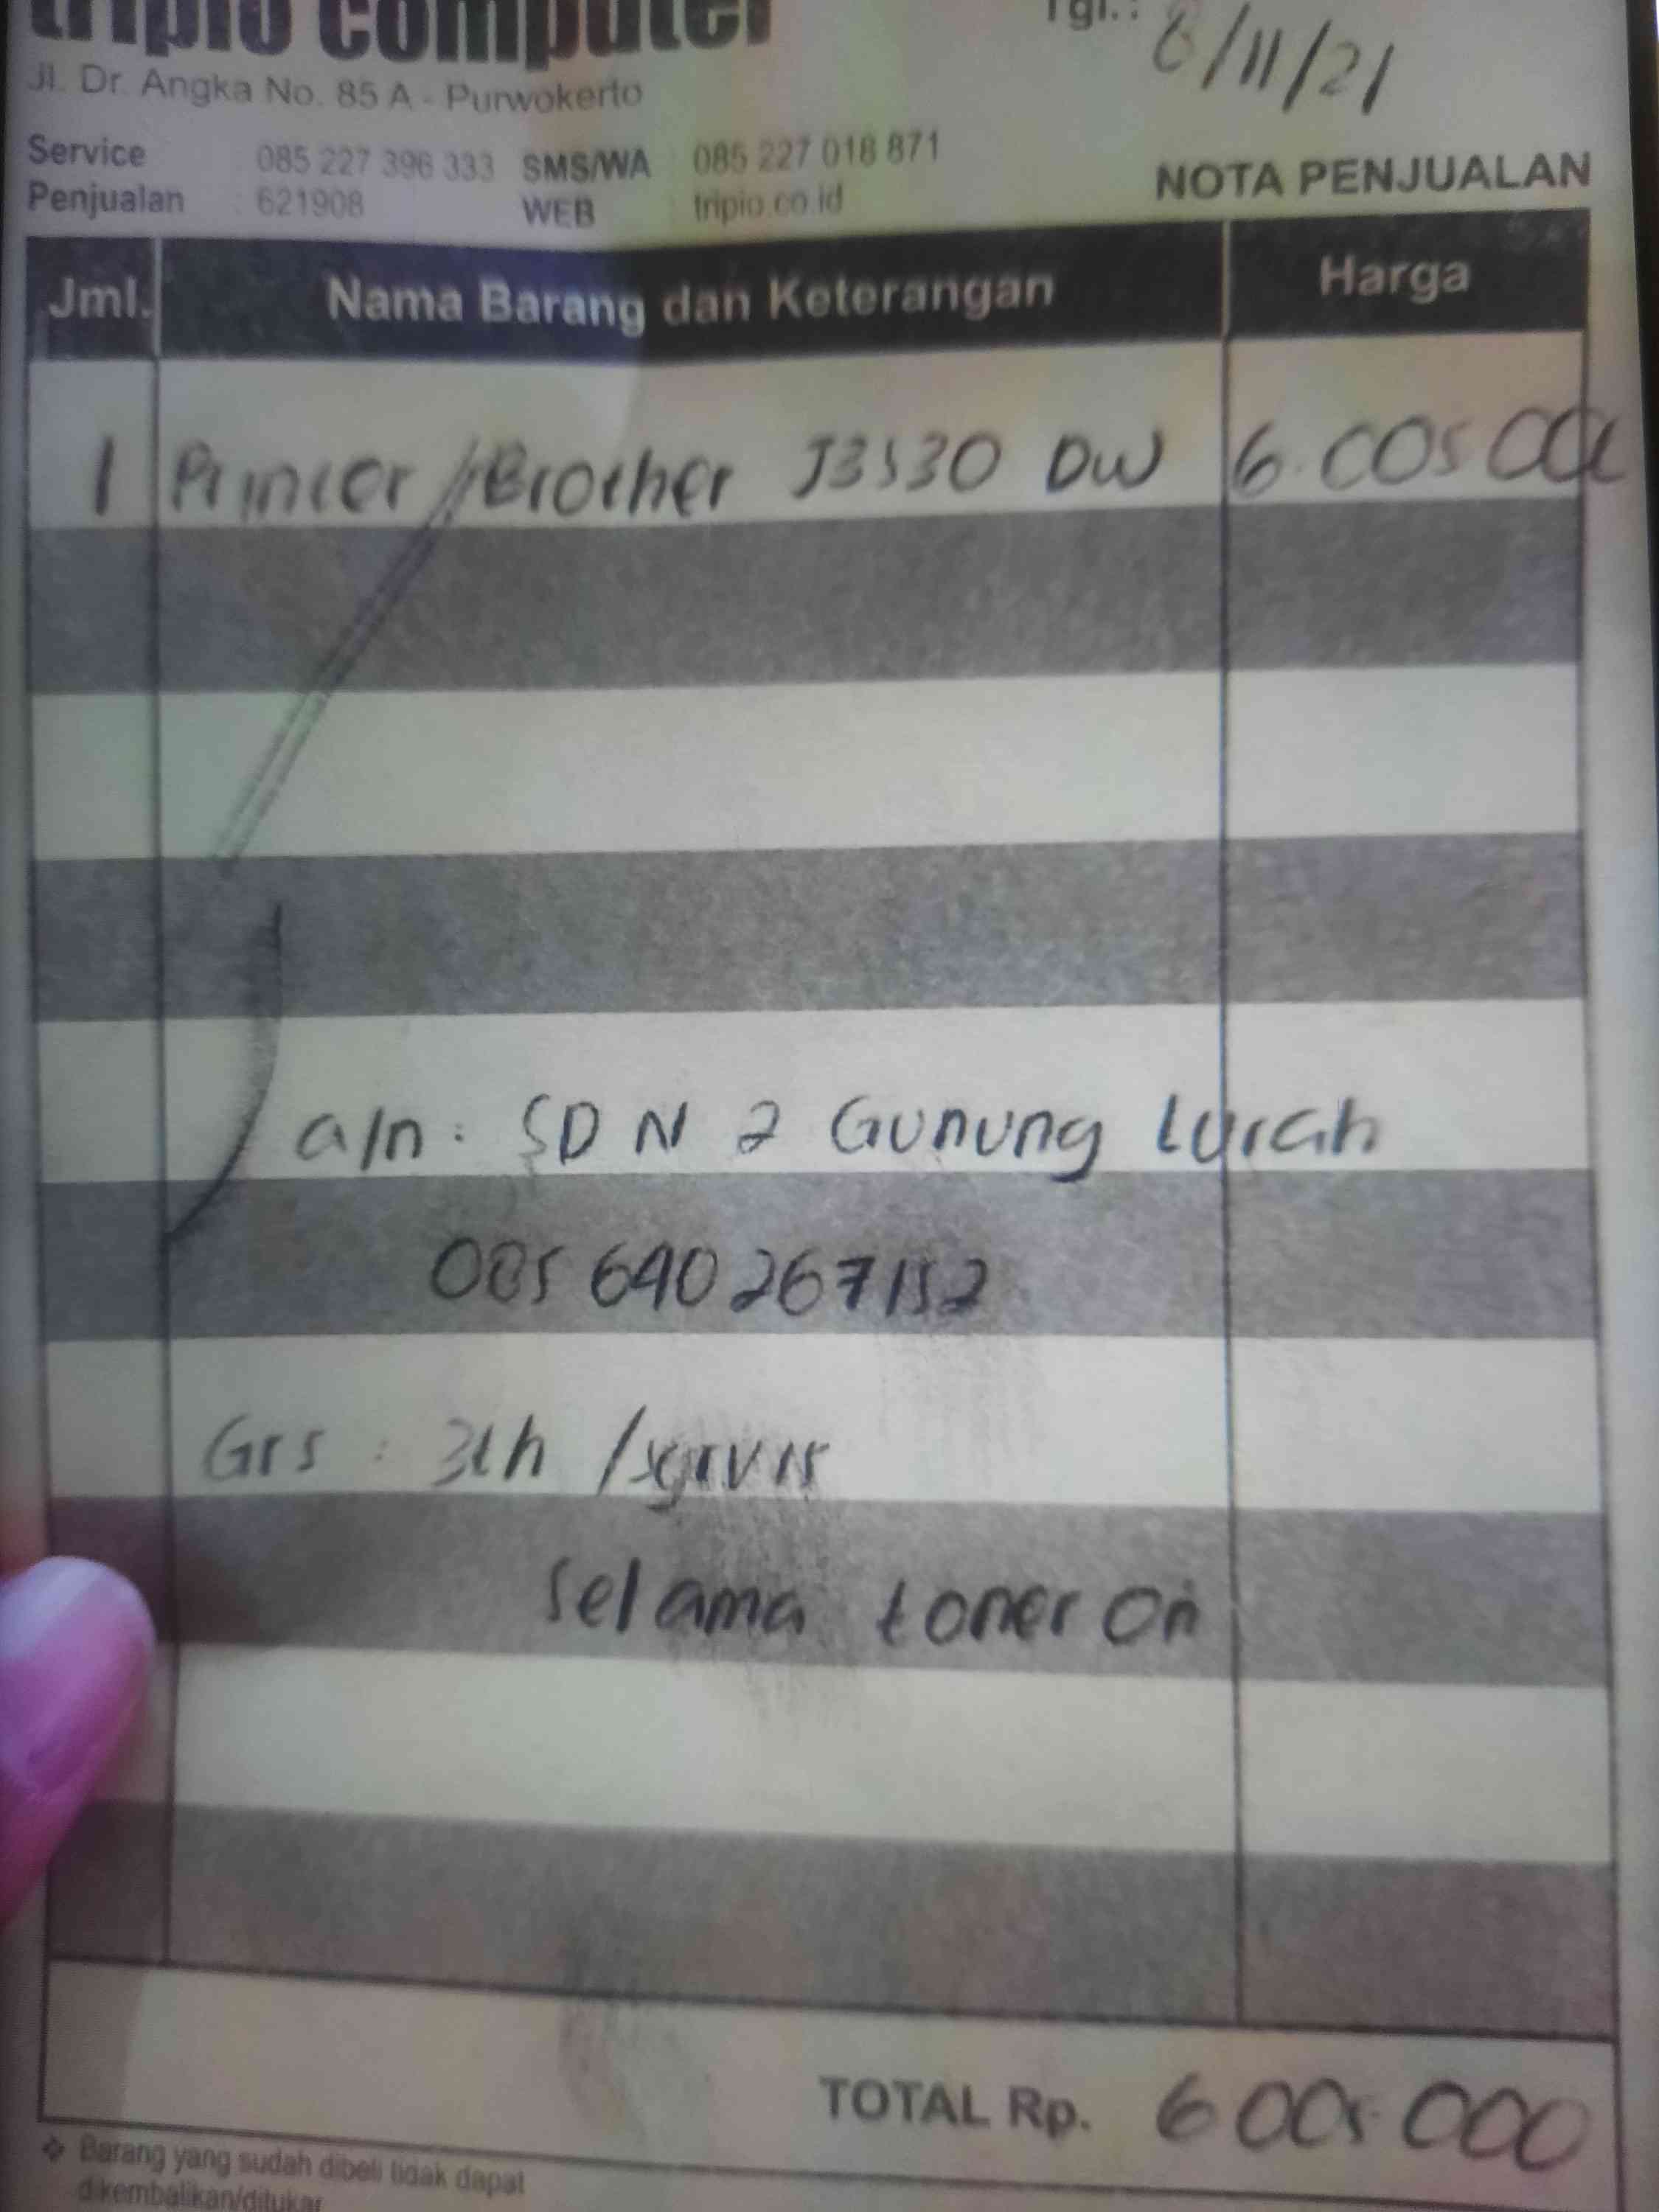 tripio computer
Tgl.: 8/11/21
Jl. Dr. Angka No. 85 A - Purwokerto
Service : 085 227 396 333 SMS/WA : 085 227 018 871
Penjualan : 621908 WEB : tripio.co.id
NOTA PENJUALAN
Jml. Nama Barang dan Keterangan Harga
1 Printer Brother J3530 DW 6.005.000
a/n : SD N 2 Gunung Lurah
085 640 267 152
Grs : 3th /servis
selama toner ori
TOTAL Rp. 6 005.000
❖ Barang yang sudah dibeli tidak dapat
dikembalikan/ditukar